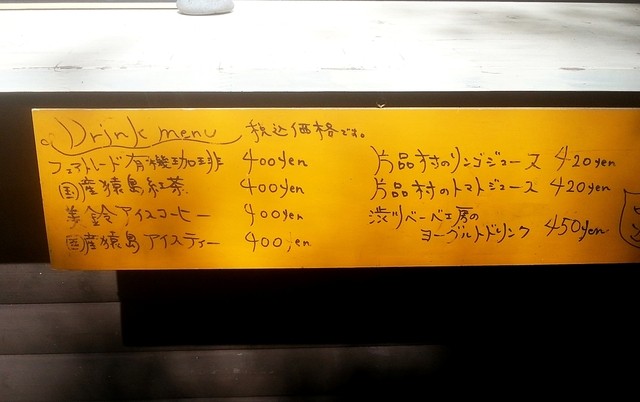 Drink menu 税込価格です。
フェアトレード有機珈琲 400yen
国産猿島紅茶 400yen
美鈴アイスコーヒー 400yen
国産猿島アイスティー 400yen
片品村のリンゴジュース 420yen
片品村のトマトジュース 420yen
渋川ベーベ工房の
ヨーグルトドリンク 450yen